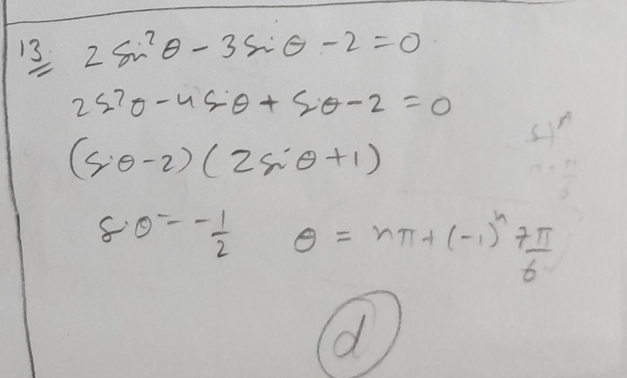 13. 2 sin²θ - 3 sin θ - 2 = 0
2 s²θ - 4 sθ + sθ - 2 = 0
(sθ - 2) (2 sin θ + 1)
sθ = -1/2 θ = nπ + (-1)ⁿ 7π/6
d